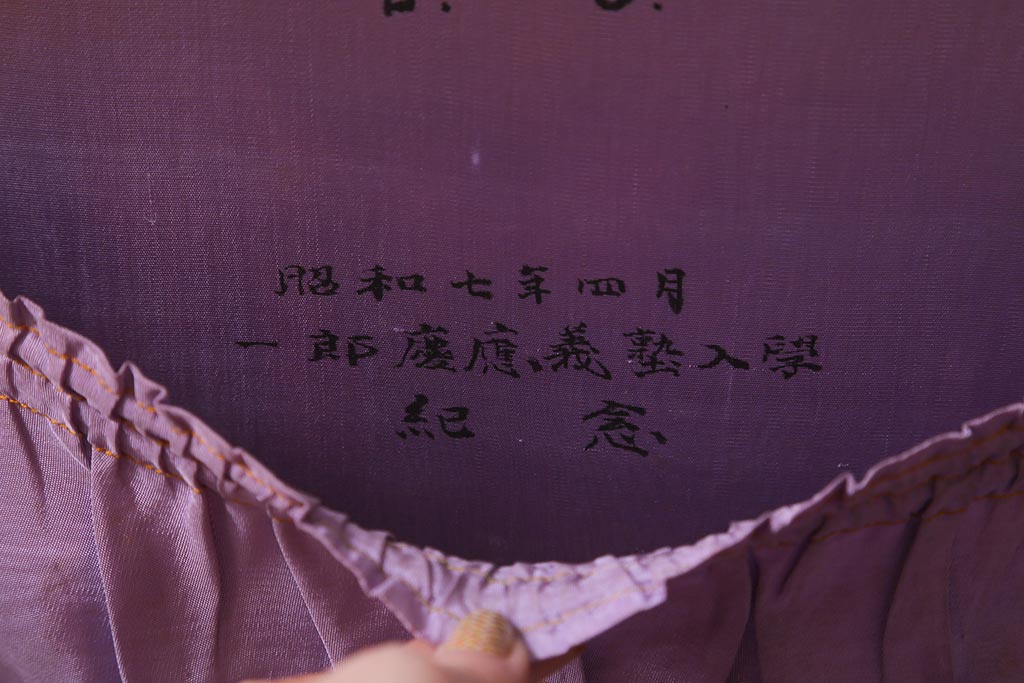 昭和七年四月
一郎慶應義塾入學
紀念